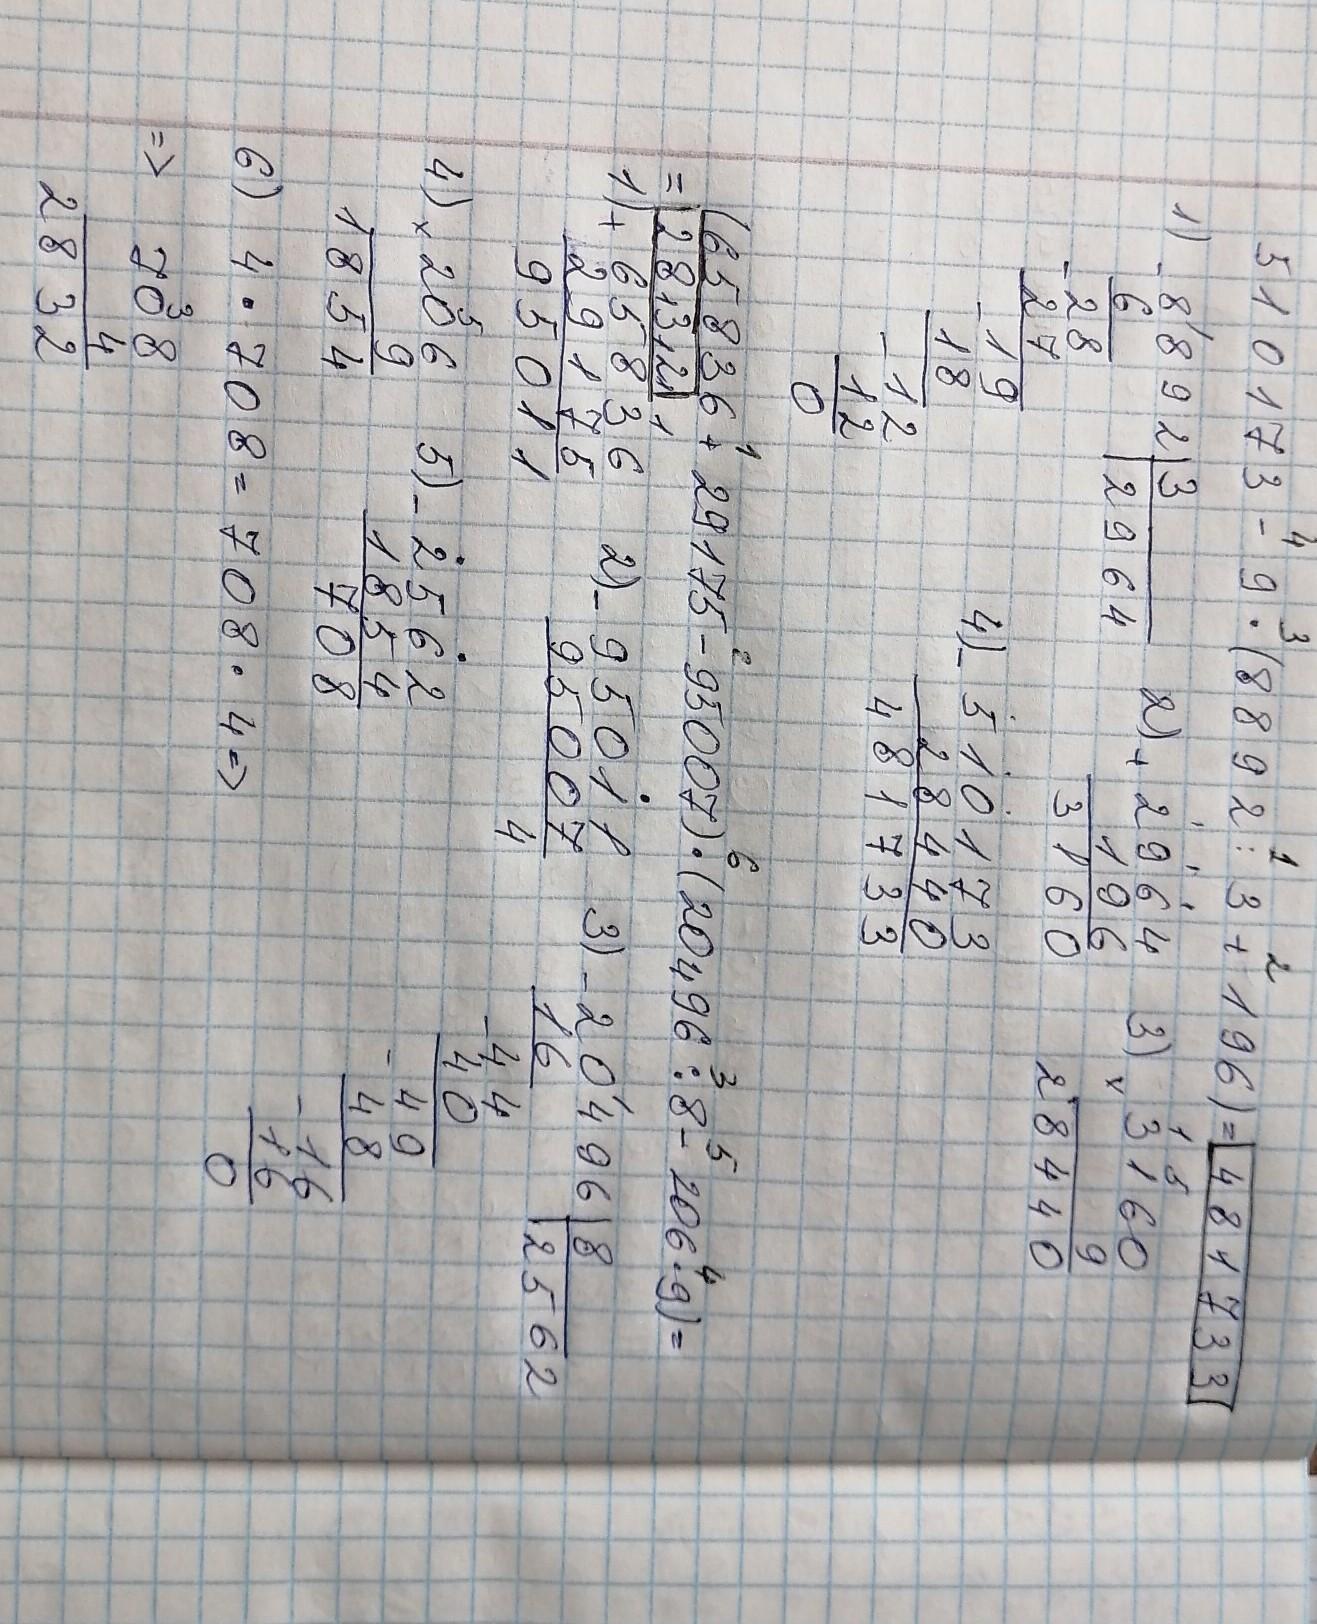 4 3 1 2
510173 - 9 · (8892 : 3 + 196) = 481733
1) - 8892 | 3
6 2964
- 28
27
- 19
18
- 12
12
0
2) + 2964
196
3160
3) × 3160
9
28440
4) - 510173
28440
481733
1 2 6 3 5 4
(65836 + 29175 - 95007) · (20496 : 8 - 206 · 9) =
= 2832
1) + 65836
29175
95011
2) - 95011
95007
4
3) - 20496 | 8
16 2562
- 44
40
- 49
48
- 16
16
0
4) × 206
9
1854
5) - 2562
1854
708
6) 4 · 708 = 708 · 4 =>
=> 708
4
2832